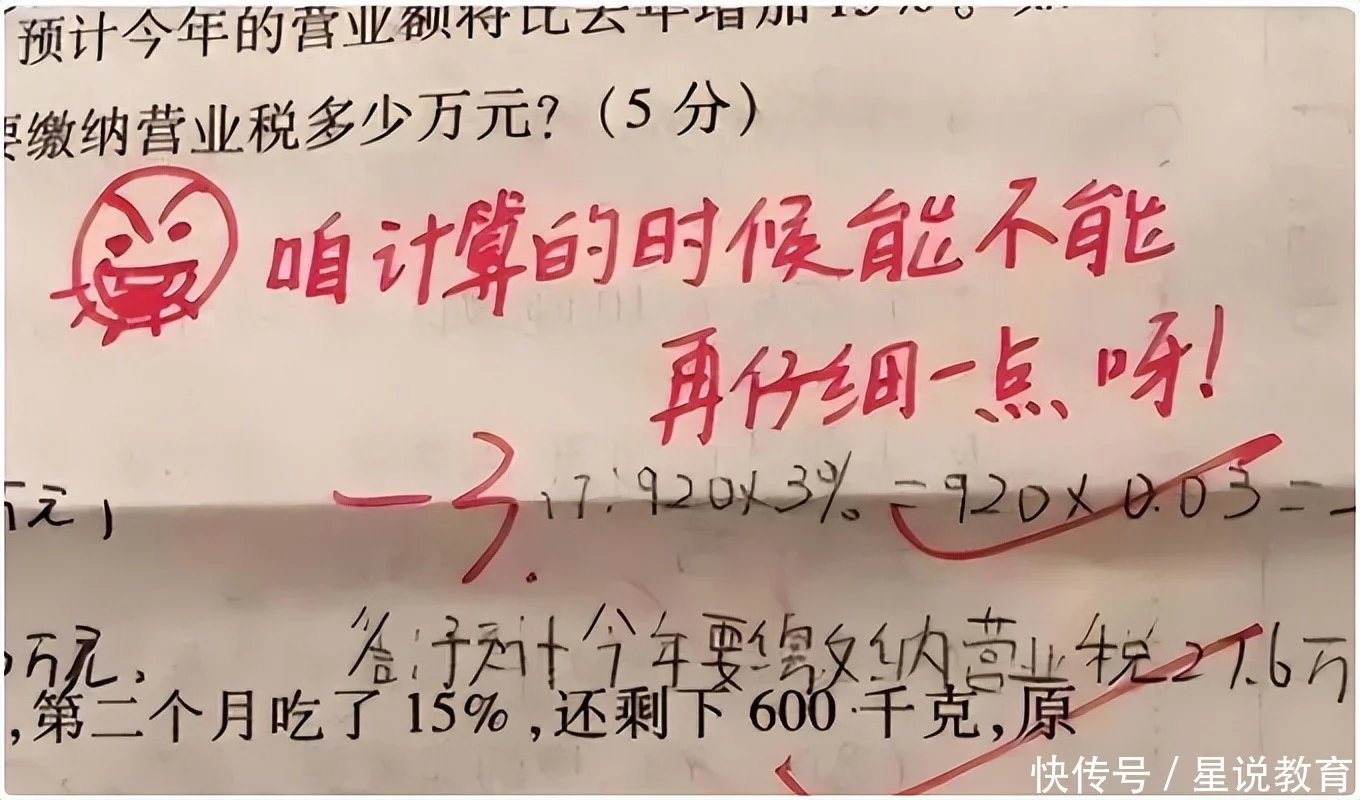 预计今年的营业额将比去年增加15%。
缴纳营业税多少万元?(5分)
咱计算的时候能不能
再仔细一点呀!
万元,
-3.
17.920×3% = 920×0.03=
万元.
答:预计今年要缴纳营业税27.6万
,第二个月吃了15%,还剩下600千克,原
快传号 / 星说教育